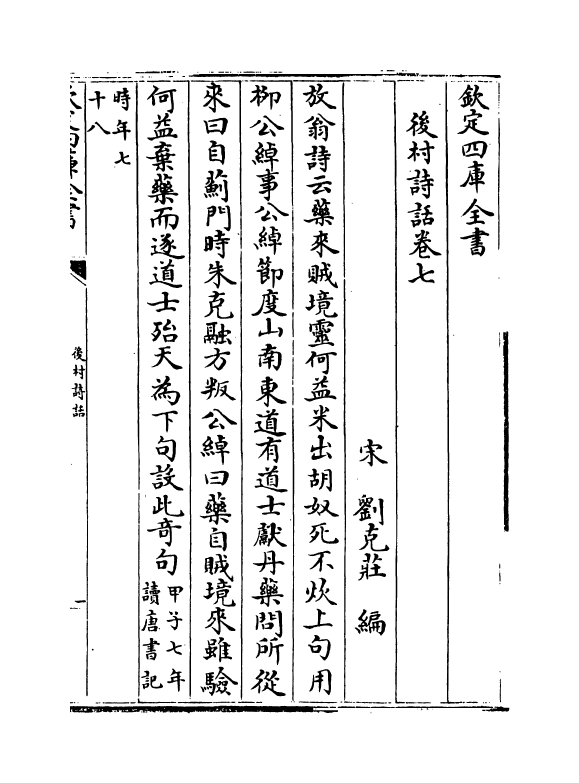 欽定四庫全書
後村詩話卷七
宋 劉克莊 編
放翁詩云藥來賊境靈何益米出胡奴死不炊上句用
柳公綽事公綽節度山南東道有道士獻丹藥問所從
來曰自薊門時朱克融方叛公綽曰藥自賊境來雖驗
何益棄藥而逐道士殆天為下句設此竒句甲子七年
讀唐書記
時年七
十八
後村詩話
一